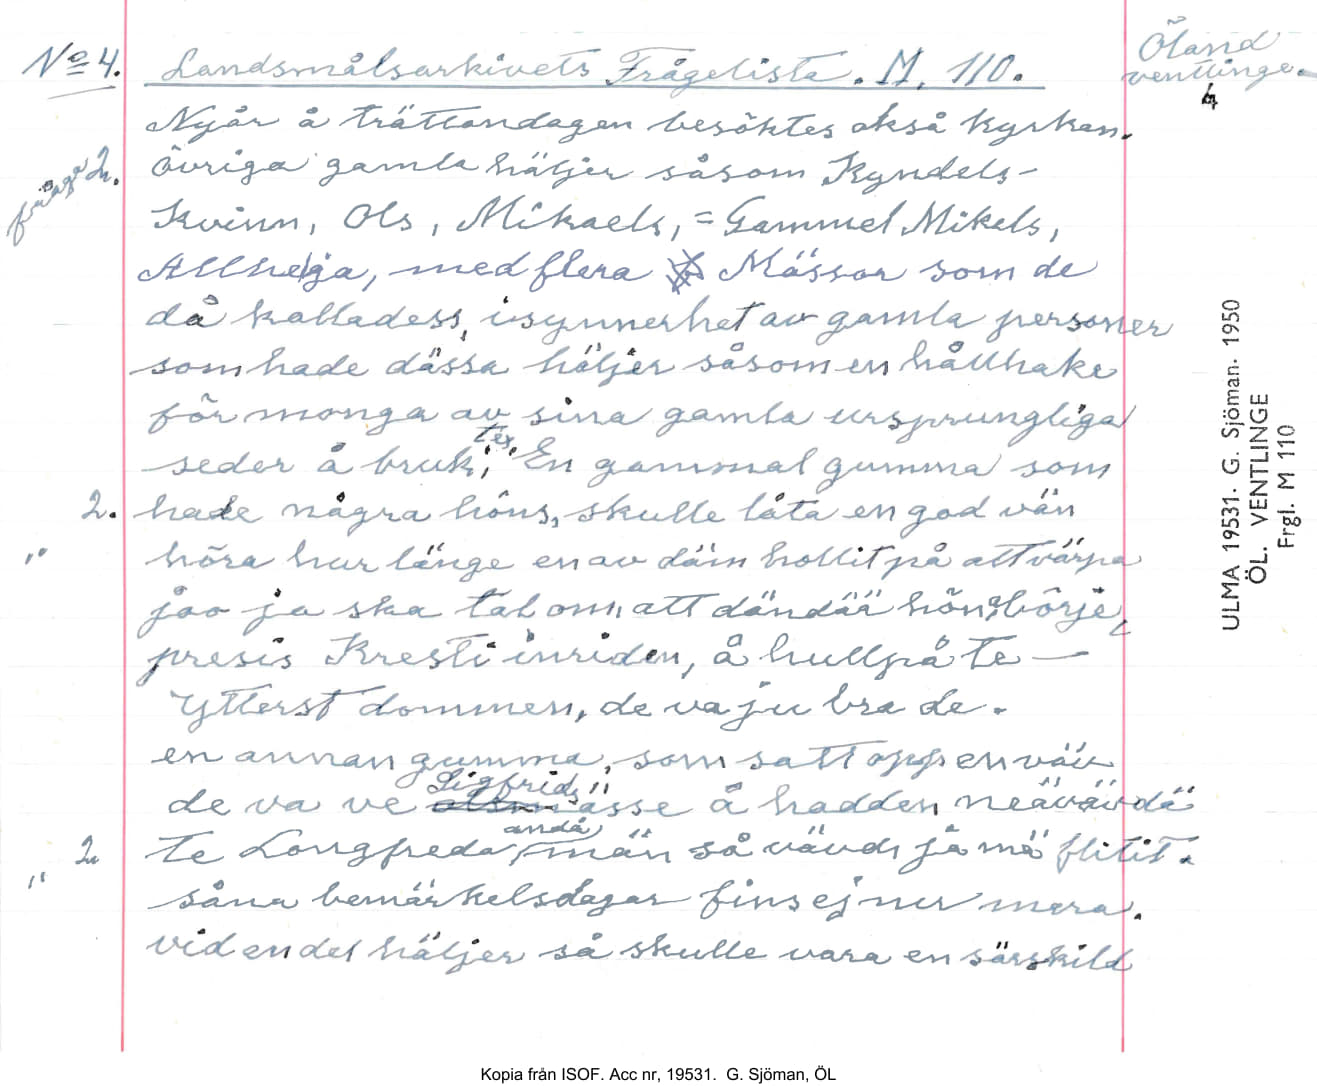 No 4. Landsmålsarkivets Frågelista. M. 110.
Öland
ventlinge.
4
Nyår å trättondagen besöktes okså kyrkan.
fråga 2. övriga gamla häljer såsom Kyndels-
Kvinn, Ols, Mikaels, = Gammel Mikels,
Allhelja, med flera Mässor som de
då kalladess, isynnerhet av gamla personer
som hade dässa häljer såsom en hållhake
för monga av sina gamla ursprungliga
seder å bruk; tex. En gammal gumma som
2. hade några höns, skulle låta en god vän
" höra hur länge en av däm hollit på att värpa
joo ja ska tal om, att dändää hön, börje,
presis Kresti inriden, å hullpå te —
Ytterst dommen, de va ju bra de.
en annan gumma, som satt opp en väv
de va ve Sigfrids ässe å hadden neävävdä
2 te Longfreda, andå män så vävdi jå mä flitit.
" såna bemärkelsdagar fins ej nu mera.
vid en del häljer så skulle vara en särskild
ULMA 19531. G. Sjöman. 1950
ÖL. VENTLINGE
Frgl. M 110
Kopia från ISOF. Acc nr, 19531. G. Sjöman, ÖL